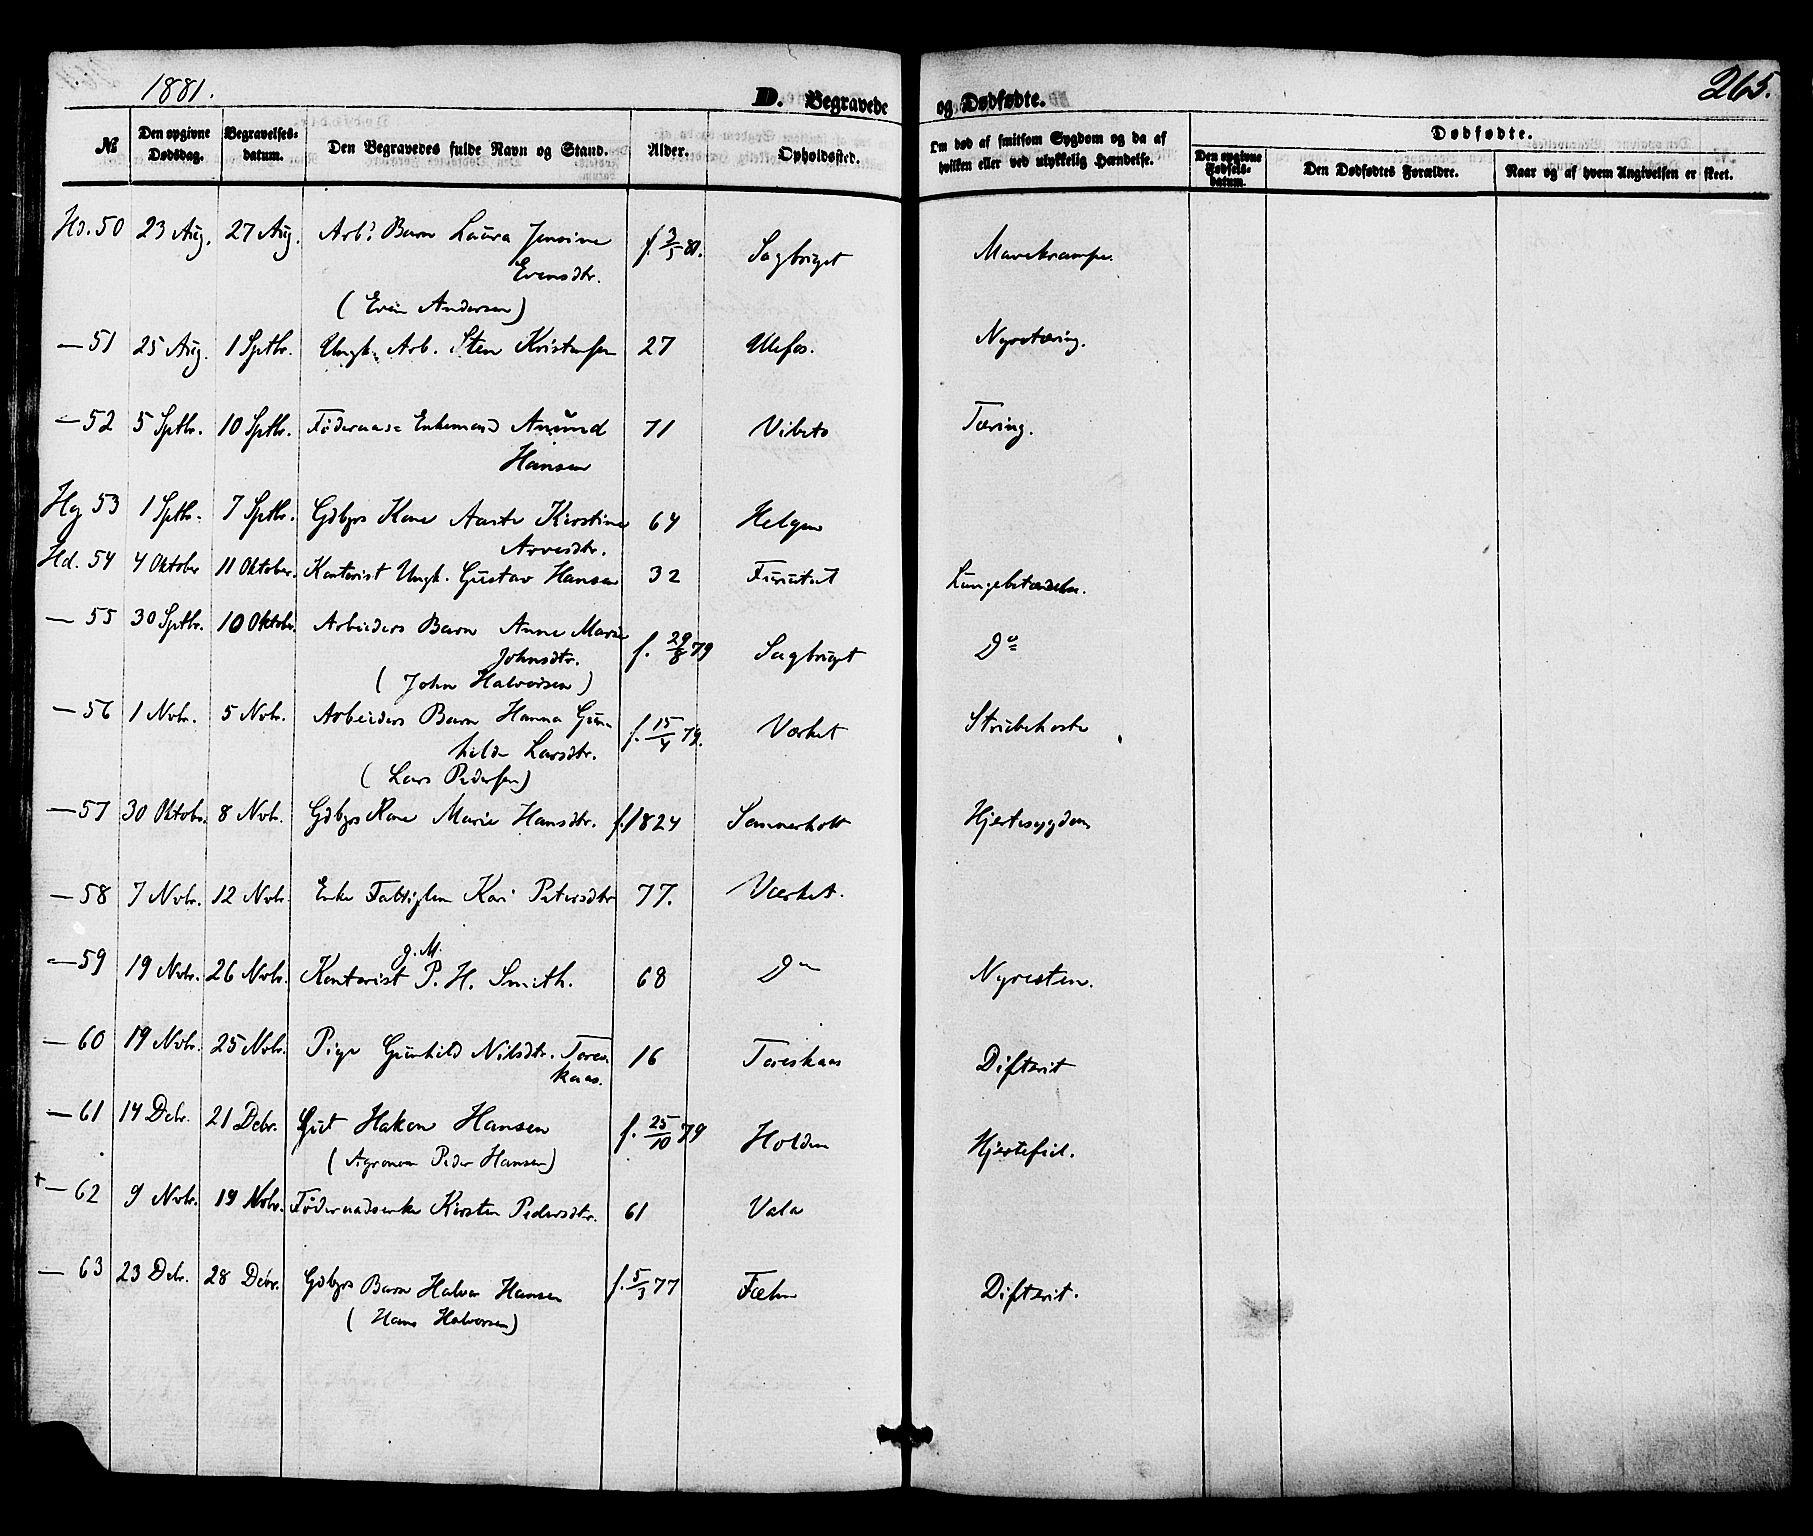 1881.
D. Begravede og Dødfødte.
265.
№ Den opgivne Dødsdag. Begravelses-datum. Den Begravedes fulde Navn og Stand. Alder. Opholdssted. Om død af smitsom Sygdom og da af hvilken eller ved ulykkelig Hændelse. Dødfødte.
Den opgivne Fødsels-datum. Den Dødfødtes Forældre. Naar og af hvem Angivelsen er skeet.
Hd. 50 23 Aug. 27 Aug. Arb. Barn Laura Jensine f. 3/5 81. Sagbruget Mavekrampe.
Evensdtr.
(Even Andersen)
— 51 25 Aug. 1 Sptbr. Ungk. Arb. Sten Kristensen 27 Ulefos. Nyretæring.
— 52 5 Sptbr. 10 Sptbr. Enkemand Anund 71 Vibeto Tæring.
Hansen
Hg 53 1 Sptbr. 7 Sptbr. Gdbgrs Kone Aaste Kirstine 64 Helgen
Arvesdtr.
Hd. 54 4 Oktober 11 Oktober. Kontorist Ungk. Gustav Hansen 32 Lungebetændelse.
— 55 30 Sptbr. 10 Oktobr. Arbeiders Barn Anne Marie f. 29/8 79 Sagbruget Do
Johnsdtr.
(John Halvorsen)
— 56 1 Nvbr. 5 Nvbr. Arbeiders Barn Hanna Gun- f. 15/4 79. Værket Strubehoste
hilde Larsdtr.
(Lars Pedersen)
— 57 30 Oktobr. 8 Nvbr. Gdbgrs Kone Marie Hansdtr. f. 1824 Sannerholt Hjertesygdom
— 58 7 Nvbr. 12 Nvbr. Enke Fattiglem Kari Petersdtr 77. Værket.
g. M.
— 59 19 Nvbr. 26 Nvbr. Kontorist P. H. Smith. 68 Do Nyresten.
— 60 19 Nvbr. 25 Nvbr. Pige Gunhild Nilsdtr. Tores- 16 Toreskaas Difterit
kaas.
— 61 14 Debr. 21 Debr. Gut Hakon Hansen f. 25/10 79 Holden Hjertefeil.
(Agronom Peder Hansen)
+ — 62 9 Nvbr. 19 Nvbr. Føderaadsenke Kirsten Pedersdtr. 61 Vala
— 63 23 Debr. 28 Debr. Gdbgrs Barn Halvor Hansen f. 5/3 77 Fæhn Difterit.
(Hans Halvorsen)